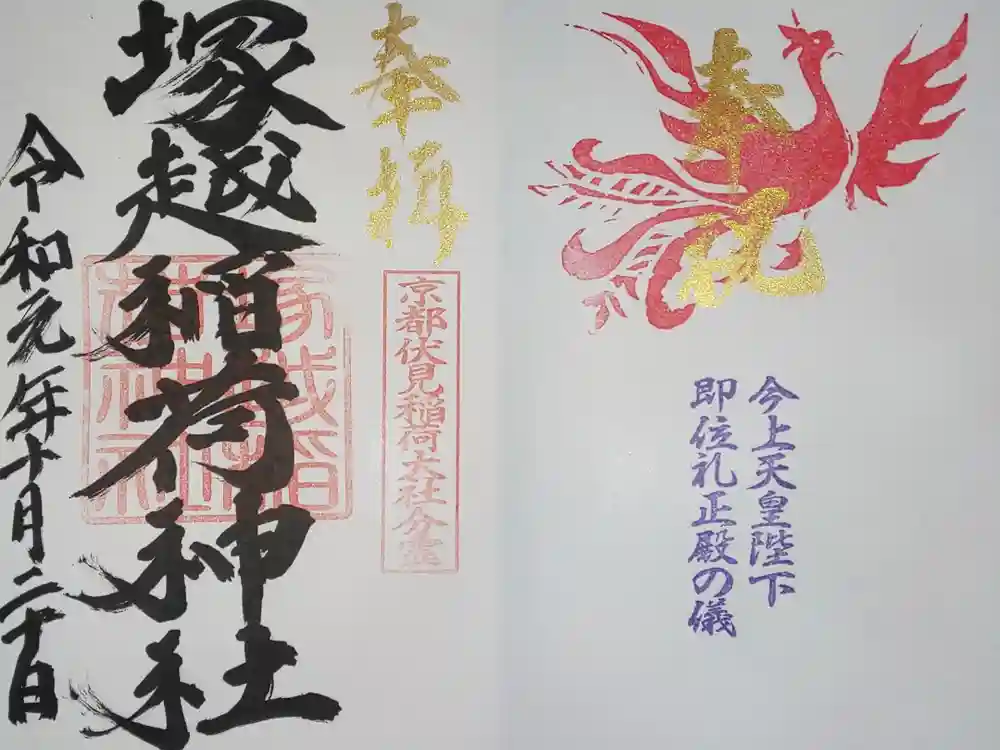 奉祝
今上天皇陛下
即位礼正殿の儀
奉拝
京都伏見稲荷大社分霊
塚越稲荷神社
塚越稲
荷神社
令和元年十月二十日